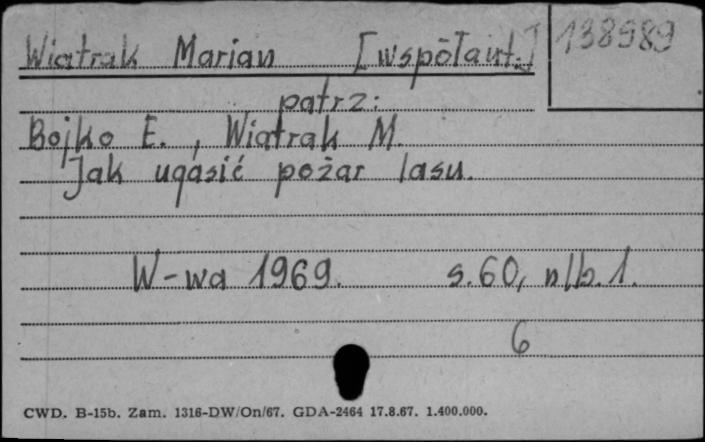 Wiatrak Marian [współaut.] 138989
patrz:
Bojko E., Wiatrak M.
Jak ugasić pożar lasu.
W-wa 1969. s.60, nlb.1.
6
CWD. B-15b. Zam. 1316-DW/On/67. GDA-2464 17.8.67. 1.400.000.